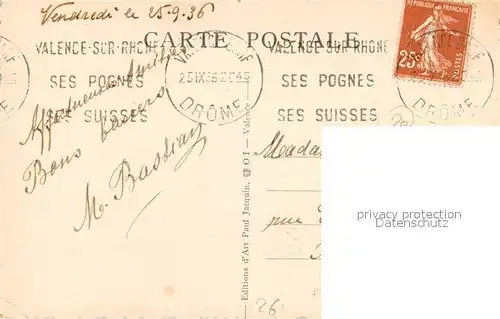 Vendredi le 25-9.36
CARTE POSTALE
VALENCE-SUR-RHONE
SES POGNES
SES SUISSES
25 IX 36 20 45
DROME
VALENCE-SUR-RHONE
SES POGNES
SES SUISSES
DROME
REPUBLIQUE FRANÇAISE
25c
POSTES
Bons baisers
M. Bastian
Editions d'Art Paul Jacquin, Valence
Madame
rue
26
privacy protection
Datenschutz